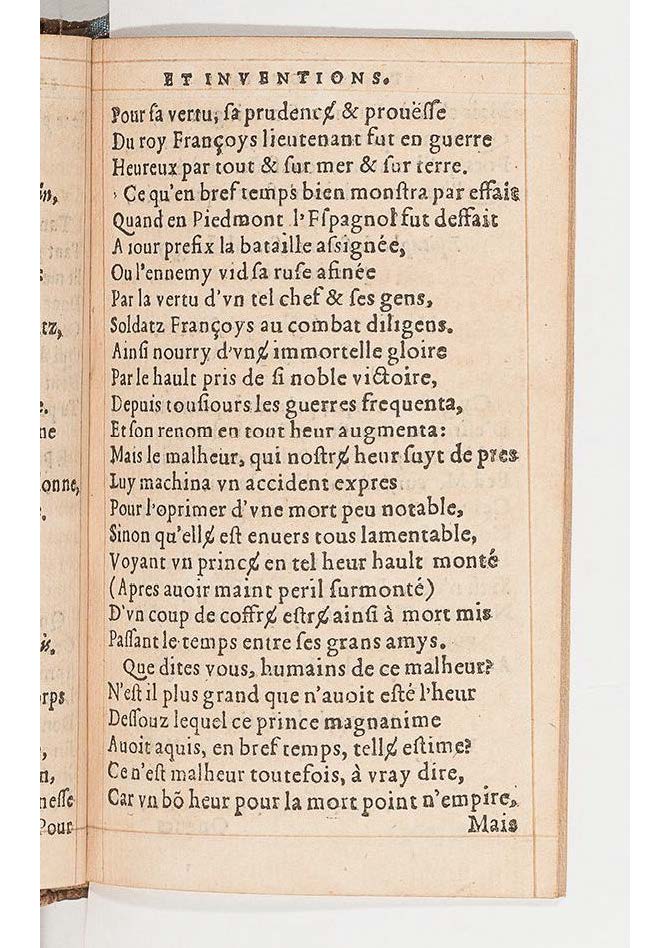 ET INVENTIONS.
Pour ſa vertu, ſa prudencɇ & prouëſſe
Du roy Françoys lieutenant fut en guerre
Heureux par tout & ſur mer & ſur terre.
Ce qu'en bref temps bien monſtra par effait
Quand en Piedmont l'Eſpagnol fut deffait
A iour prefix la bataille aſsignée,
Ou l'ennemy vid ſa ruſe afinée
Par la vertu d'vn tel chef & ſes gens,
Soldatz Françoys au combat diligens.
Ainſi nourry d'vnɇ immortelle gloire
Par le hault pris de ſi noble victoire,
Depuis touſiours les guerres frequenta,
Et ſon renom en tout heur augmenta:
Mais le malheur, qui noſtrɇ heur ſuyt de pres
Luy machina vn accident expres
Pour l'oprimer d'vne mort peu notable,
Sinon qu'ellɇ eſt enuers tous lamentable,
Voyant vn princɇ en tel heur hault monté
(Apres auoir maint peril ſurmonté)
D'vn coup de coffrɇ eſtrɇ ainſi à mort mis
Paſſant le temps entre ſes grans amys.
Que dites vous, humains de ce malheur?
N'eſt il plus grand que n'auoit eſté l'heur
Deſſouz lequel ce prince magnanime
Auoit aquis, en bref temps, tellɇ eſtime?
Ce n'eſt malheur toutefois, à vray dire,
Car vn bõ heur pour la mort point n'empire,
Mais